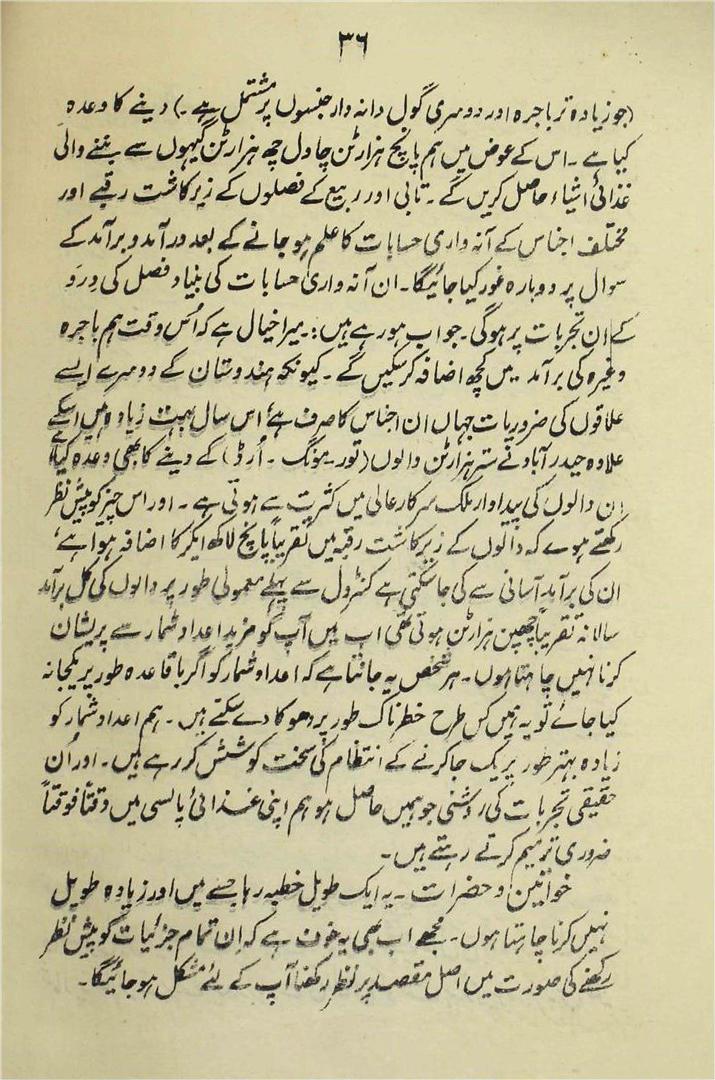 ۳۶
(جو زیادہ تر باجرہ اور دوسری گول دانہ دار جنسوں پر مشتمل ہے ۔) دینے کا وعدہ
کیا ہے ۔ اس کے عوض میں ہم پانچ ہزار ٹن چاول چھ ہزار ٹن گیہوں سے بننے والی
غذائی اشیاء حاصل کریں گے ۔ تابی اور ربیع کے فصلوں کے زیر کاشت رقبے اور
مختلف اجناس کے آنہ واری حسابات کا علم ہو جانے کے بعد درآمد و برآمد کے
سوال پر دوبارہ غور کیا جائیگا ۔ ان آنہ واری حسابات کی بنیاد فصل کی درَو
کے ان تجربات پر ہوگی ۔ جو اب ہو رہے ہیں :۔ میرا خیال ہے کہ اُس وقت ہم باجرہ
وغیرہ کی برآمد میں کچھ اضافہ کر سکیں گے ۔ کیونکہ ہندوستان کے دوسرے ایسے
علاقوں کی ضروریات جہاں ان اجناس کا صرف ہے اس سال بہت زیادہ ہیں اسکے
علاوہ حیدرآباد نے ستر ہزار ٹن دالوں (تور ۔ مونگ ۔ اُرد) کے دینے کا بھی وعدہ کیا ہے
ان دالوں کی پیداوار ملک سرکار عالی میں کثرت سے ہوتی ہے ۔ اور اس چیز کو پیش نظر
رکھتے ہوے کہ دالوں کے زیر کاشت رقبہ میں تقریباً پانچ لاکھ ایکر کا اضافہ ہوا ہے
ان کی برآمد آسانی سے کی جا سکتی ہے کنٹرول سے پہلے معمولی طور پر دالوں کی کل برآمد
سالانہ تقریباً چھپن ہزار ٹن ہوتی تھی اب میں آپ کو مزید اعداد و شمار سے پریشان
کرنا نہیں چاہتا ہوں ۔ ہر شخص یہ جانتا ہے کہ اعداد و شمار کو اگر باقاعدہ طور پر یکجا نہ
کیا جائے تو یہ ہمیں کس طرح خطرناک طور پر دھوکا دے سکتے ہیں ۔ ہم اعداد و شمار کو
زیادہ بہتر طور پر یک جا کرنے کے انتظام کی سخت کوشش کر رہے ہیں ۔ اور اُن
حقیقی تجربات کی روشنی جو ہمیں حاصل ہو ہم اپنی غذائی پالسی میں وقتاً فوقتاً
ضروری ترمیم کرتے رہتے ہیں ۔
خواتین و حضرات ۔ یہ ایک طویل خطبہ رہا جسے میں اور زیادہ طویل
نہیں کرنا چاہتا ہوں ۔ مجھے اب بھی یہ خوف ہے کہ ان تمام جزئیات کو پیش نظر
رکھنے کی صورت میں اصل مقصد پر نظر رکھنا آپ کے لئے مشکل ہو جائیگا ۔